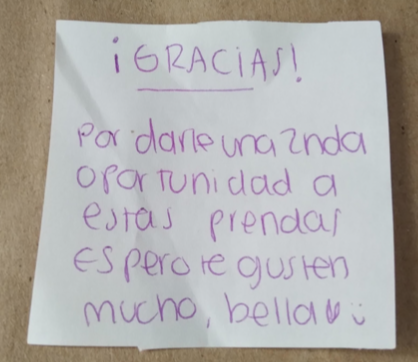 ¡GRACIAS!
Por darle una 2nda
oportunidad a
estas prendas
Espero te gusten
mucho, bella ♥ :)